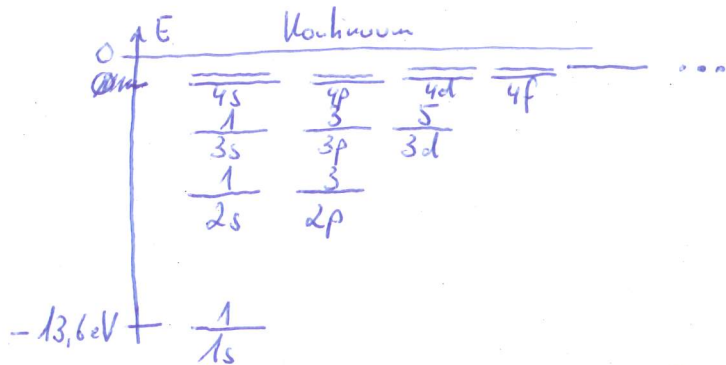 E Kontinuum
0
4s 4p 4d 4f ...
1 3 5
3s 3p 3d
1 3
2s 2p
-13,6eV 1
1s